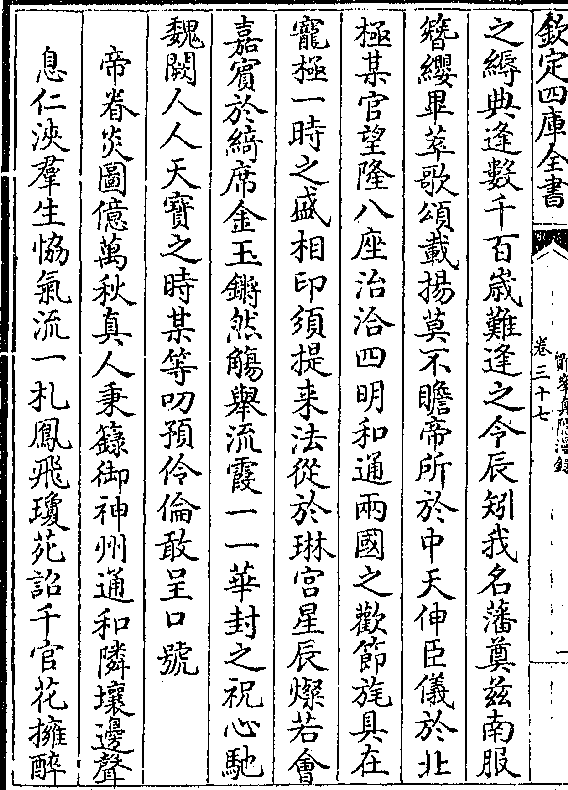 欽定四庫全書
卷三十七
之縟典逢數千百歲難逢之令辰矧我名藩奠兹南服
簪纓畢萃歌頌載揚莫不瞻帝所於中天伸臣儀於北
極某官望隆八座治洽四明和通兩國之歡節旄具在
寵極一時之盛相印須提来法從於琳宫星辰燦若會
嘉賓於綺席金玉鏘然觴舉流霞一一華封之祝心馳
魏闕人人天寶之時某等叨預伶倫敢呈口號
帝眷炎圖億萬秋真人秉籙御神州通和隣壤邊聲
息仁浹羣生恊氣流一札鳳飛瓊苑詔千官花擁醉